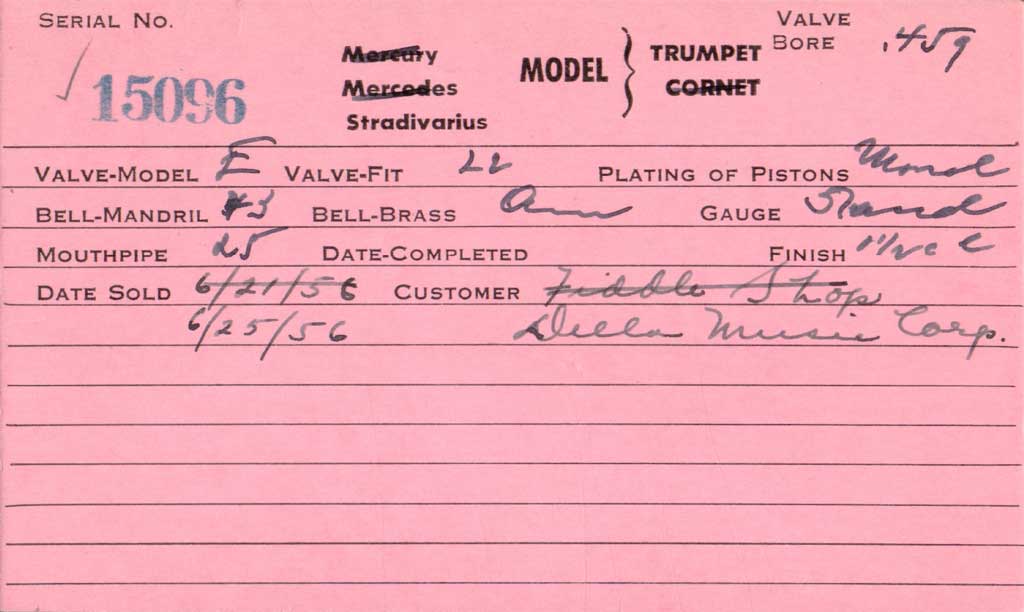 SERIAL NO. 15096
Mercury
Mercedes
Stradivarius
MODEL } TRUMPET
CORNET
VALVE BORE .459
VALVE-MODEL E VALVE-FIT LL PLATING OF PISTONS Monel
BELL-MANDRIL #3 BELL-BRASS GAUGE Stand
MOUTHPIPE 25 DATE-COMPLETED FINISH
DATE SOLD 6/21/56 CUSTOMER Fiddle Shop
6/25/56 Della Music Corp.